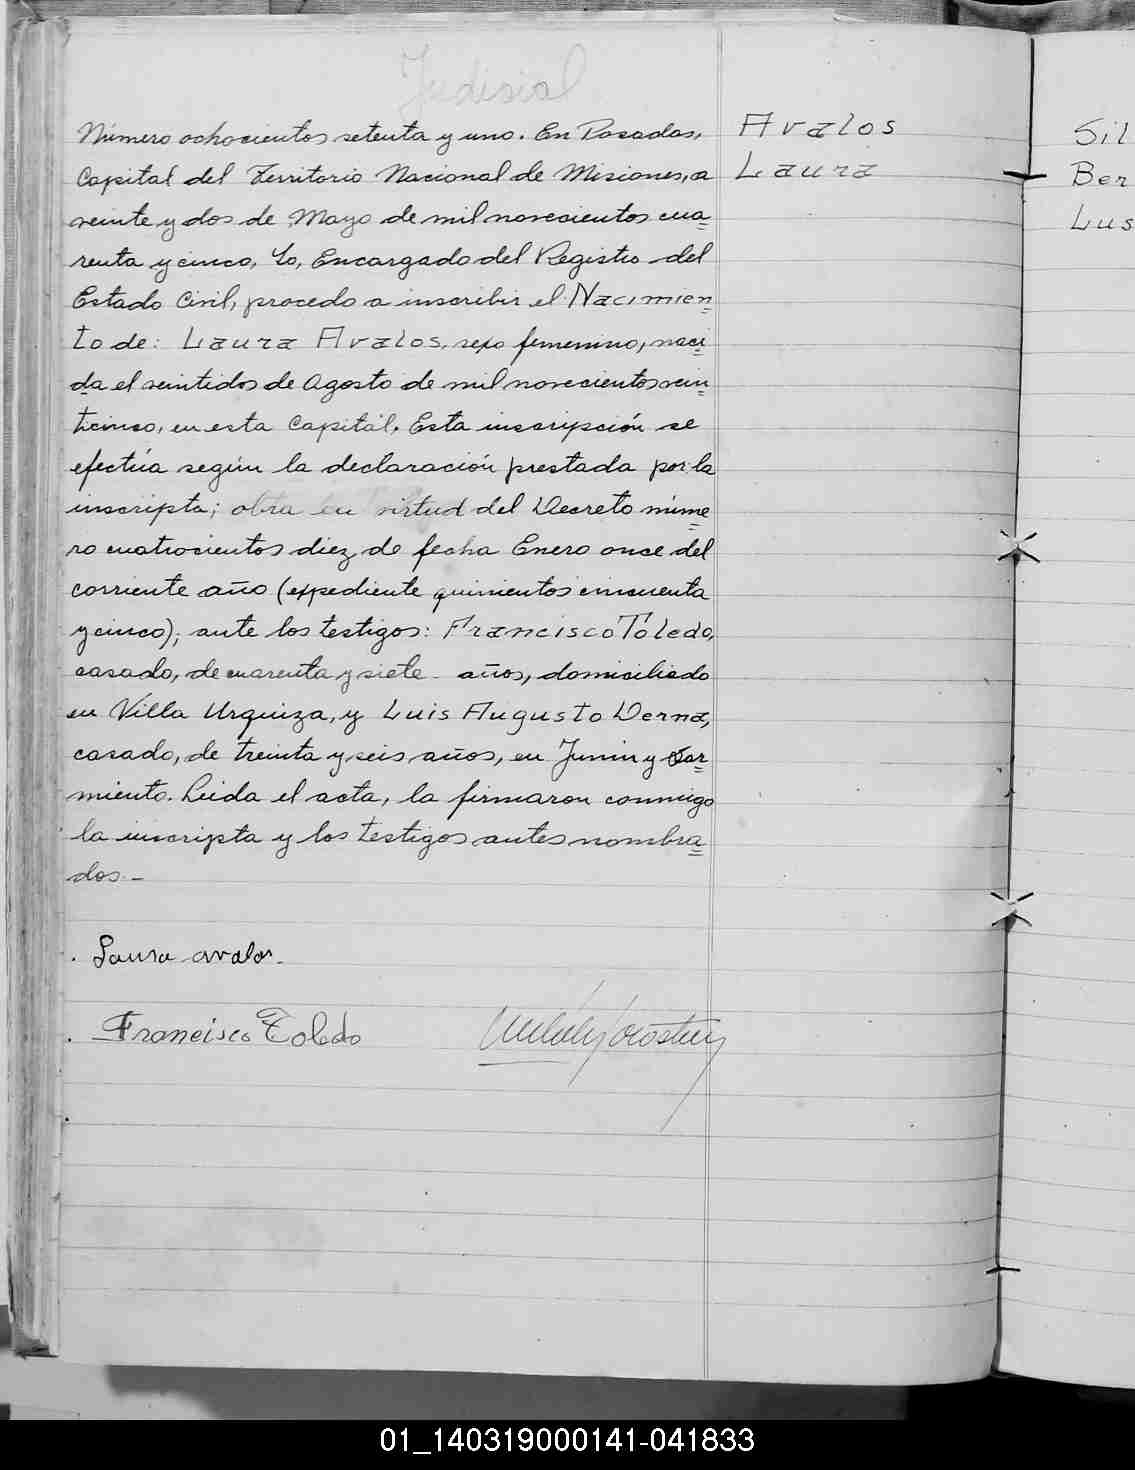 Judisial
Número ochocientos setenta y uno. En Posadas,
Capital del Territorio Nacional de Misiones, a
veinte y dos de Mayo de mil novecientos cua
renta y cinco, Yo, Encargado del Registro del
Estado Civil, procedo a inscribir el Nacimien
to de: Laura Avalos, sexo femenino, naci
da el veintidos de Agosto de mil novecientos vein
ticinco, en esta Capital. Esta inscripción se
efectúa según la declaración prestada por la
inscripta; obra en virtud del Decreto núme
ro cuatrocientos diez de fecha Enero once del
corriente año (expediente quinientos cincuenta
y cinco); ante los testigos: Francisco Toledo,
casado, de cuarenta y siete años, domiciliado
en Villa Urquiza, y Luis Augusto Derna,
casado, de treinta y seis años, en Junin y Sar
miento. Leida el acta, la firmaron conmigo
la inscripta y los testigos antes nombra
dos.-
Laura Avalos.
Francisco Toledo
Avalos
Laura
Sil
Ber
Lus
01_140319000141-041833